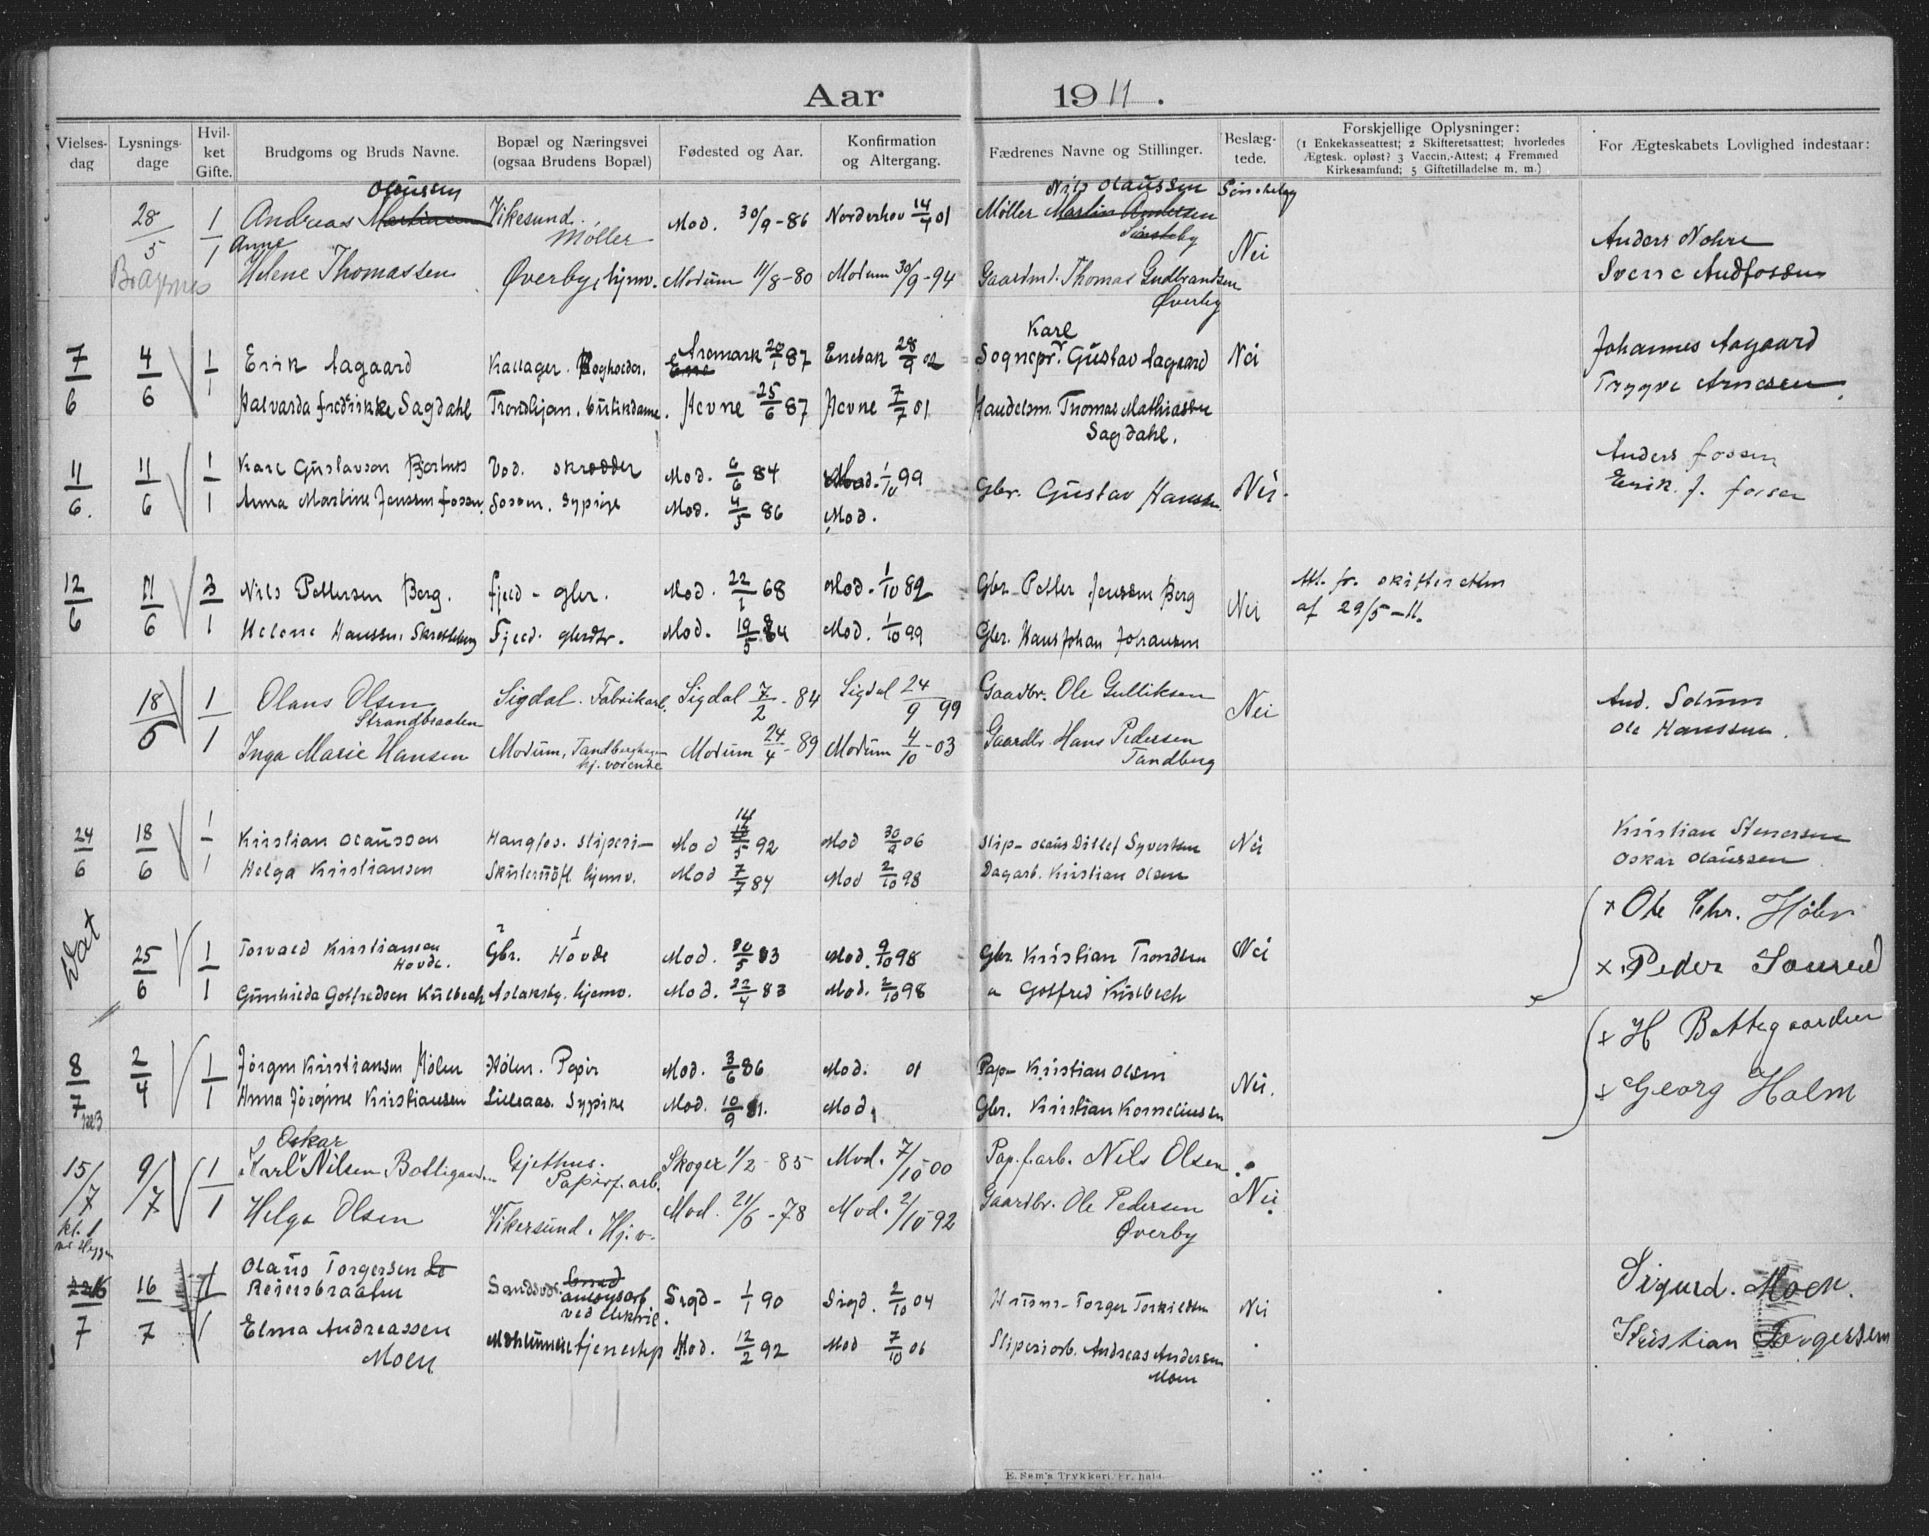 Aar 1911.
Vielses-dag
Lysnings-dage
Hvil-ket Gifte.
Brudgoms og Bruds Navne.
Bopæl og Næringsvei (ogsaa Brudens Bopæl)
Fødested og Aar.
Konfirmation og Altergang.
Fædrenes Navne og Stillinger.
Beslæg-tede.
Forskjellige Oplysninger:
(1 Enkekasseattest; 2 Skifteretsattest; hvorledes Ægtesk. opløst? 3 Vaccin.-Attest; 4 Fremmed Kirkesamfund; 5 Giftetilladelse m. m.)
For Ægteskabets Lovlighed indestaar:
Olaussen Nils Olaussen
28/5 1/1 Andreas Martinsen Vikesund. Møller Mod. 30/9-86 Norderhov 14/4 01 Møller Martin Andersen
Anne Nei Anders Nohre
Bragernes Helene Thomassen Øverby, hjmv. Modum 11/8-80 Modum 30/9-94 Gaardm. Thomas Gudbrandsen
Øverby
Karl
7/6 4/6 1/1 Erik Aagaard Kallager. Bogholder. Aremark 20/1 87 Enebak 28/9 02 Sognepr. Gustav Aagaard Nei Johannes Aagaard
Halvarda Fredrikke Sagdahl Trondhjem. butikdame. Hevne 25/6 87 Hevne 7/7 01 Handelsm. Thomas Mathiassen Trygve Arnesen.
Sagdahl.
11/6. 11/6 1/1 Karl Gustavson skrædder Mod. 6/6 84 Mod. 1/10 99 Gbr. Gustav Hansen Nei. Anders Fossen
Anna Martine Jensen Fossen. Fossen. Sypige Mod. 4/5 86 Mod. Erik. J. Fossen
12/6 11/6 3/1 Nils Pettersen Berg. Fjeld - gbr. Mod. 22/1 68 Mod. 1/10 82 Gbr. Petter Jensen Berg Nei Att. fr. skifteretten
af 29/5-11.
Helene Hanssen Fjeld. gbrdtr. Mod. 19/5 84 Mod. 1/10 99 Gbr. Hans Johan Johansen
18/6 1/1 Olaus Olsen Sigdal. Fabrikarb. Sigdal 7/2-84 Sigdal 24/9 99 Gaardbr. Ole Gulliksen Nei And. Solum
Strandbraaten
Inga Marie Hansen Modum, Tandberghagen Modum 24/4-89 Modum 4/10-03 Gaardbr. Hans Pedersen Ole Hanssen.
hj. værende Tandberg
24/6 18/6 1/1 Kristian Olausson Hangfos. sliperi- Mod 14/5 92 Mod 30/9 06 Slip- Olaus Ditlef Syvertsen Nei Kristian Stenersen
Helga Kristiansen hjemv. Mod 7/7 84 Mod 2/10 98 Dagarb. Kristian Olsen Oskar Olaussen
25/6 1/1 Torvald Kristiansen Gbr. Hovde Mod. 30/5 83 Mod. 9/10 98 Gbr Kristian Trondsen Nei x Ole Chr. Holm
Hovde.
Gunhilda Gotfredsen Kulbech Aslaksby. hjemv. Mod. 22/4 83 Mod. 2/10 98 " Gotfred Kulbech x Peder
8/7 2/4 1/1 Jørgen Kristiansen Hølen Hølen. Papir Mod. 3/6 86 Mod. 01 Pap- Kristian Olsen Nei. x H Bottegaarden
Anna Jørgine Kristiansen Lilleaas. Sypike Mod. 10/9 81. Mod. Gbr. Kristian Korneliussen x Georg Holm
Oskar
15/7 9/7 1/1 Karl Nilsen Gjethus. Papirf. arb. Skoger 1/2-85 Mod. 7/10 00 Pap.f.arb. Nils Olsen Nei
Helga Olsen Vikersund. Hj.v. Mod. 21/6-78 Mod. 2/10 92 Gaardbr. Ole Pedersen
kl. 1 Øverby
Olaus Torgersen
22/7 16/7 1/1 Reiersbraaten ved elektric. Sigd- 1/1 90 Sigd. 2/10 04 Husm- Torger Torkildsen Nei Sigurd. Moen.
Elma Andreassen tjenestep Mod. 12/2 92 Mod 7/10 06 Sliperiarb. Andreas Andersen Kristian Torgersen
Moen Moen
E. Sem's Trykkeri, Fr. hald.